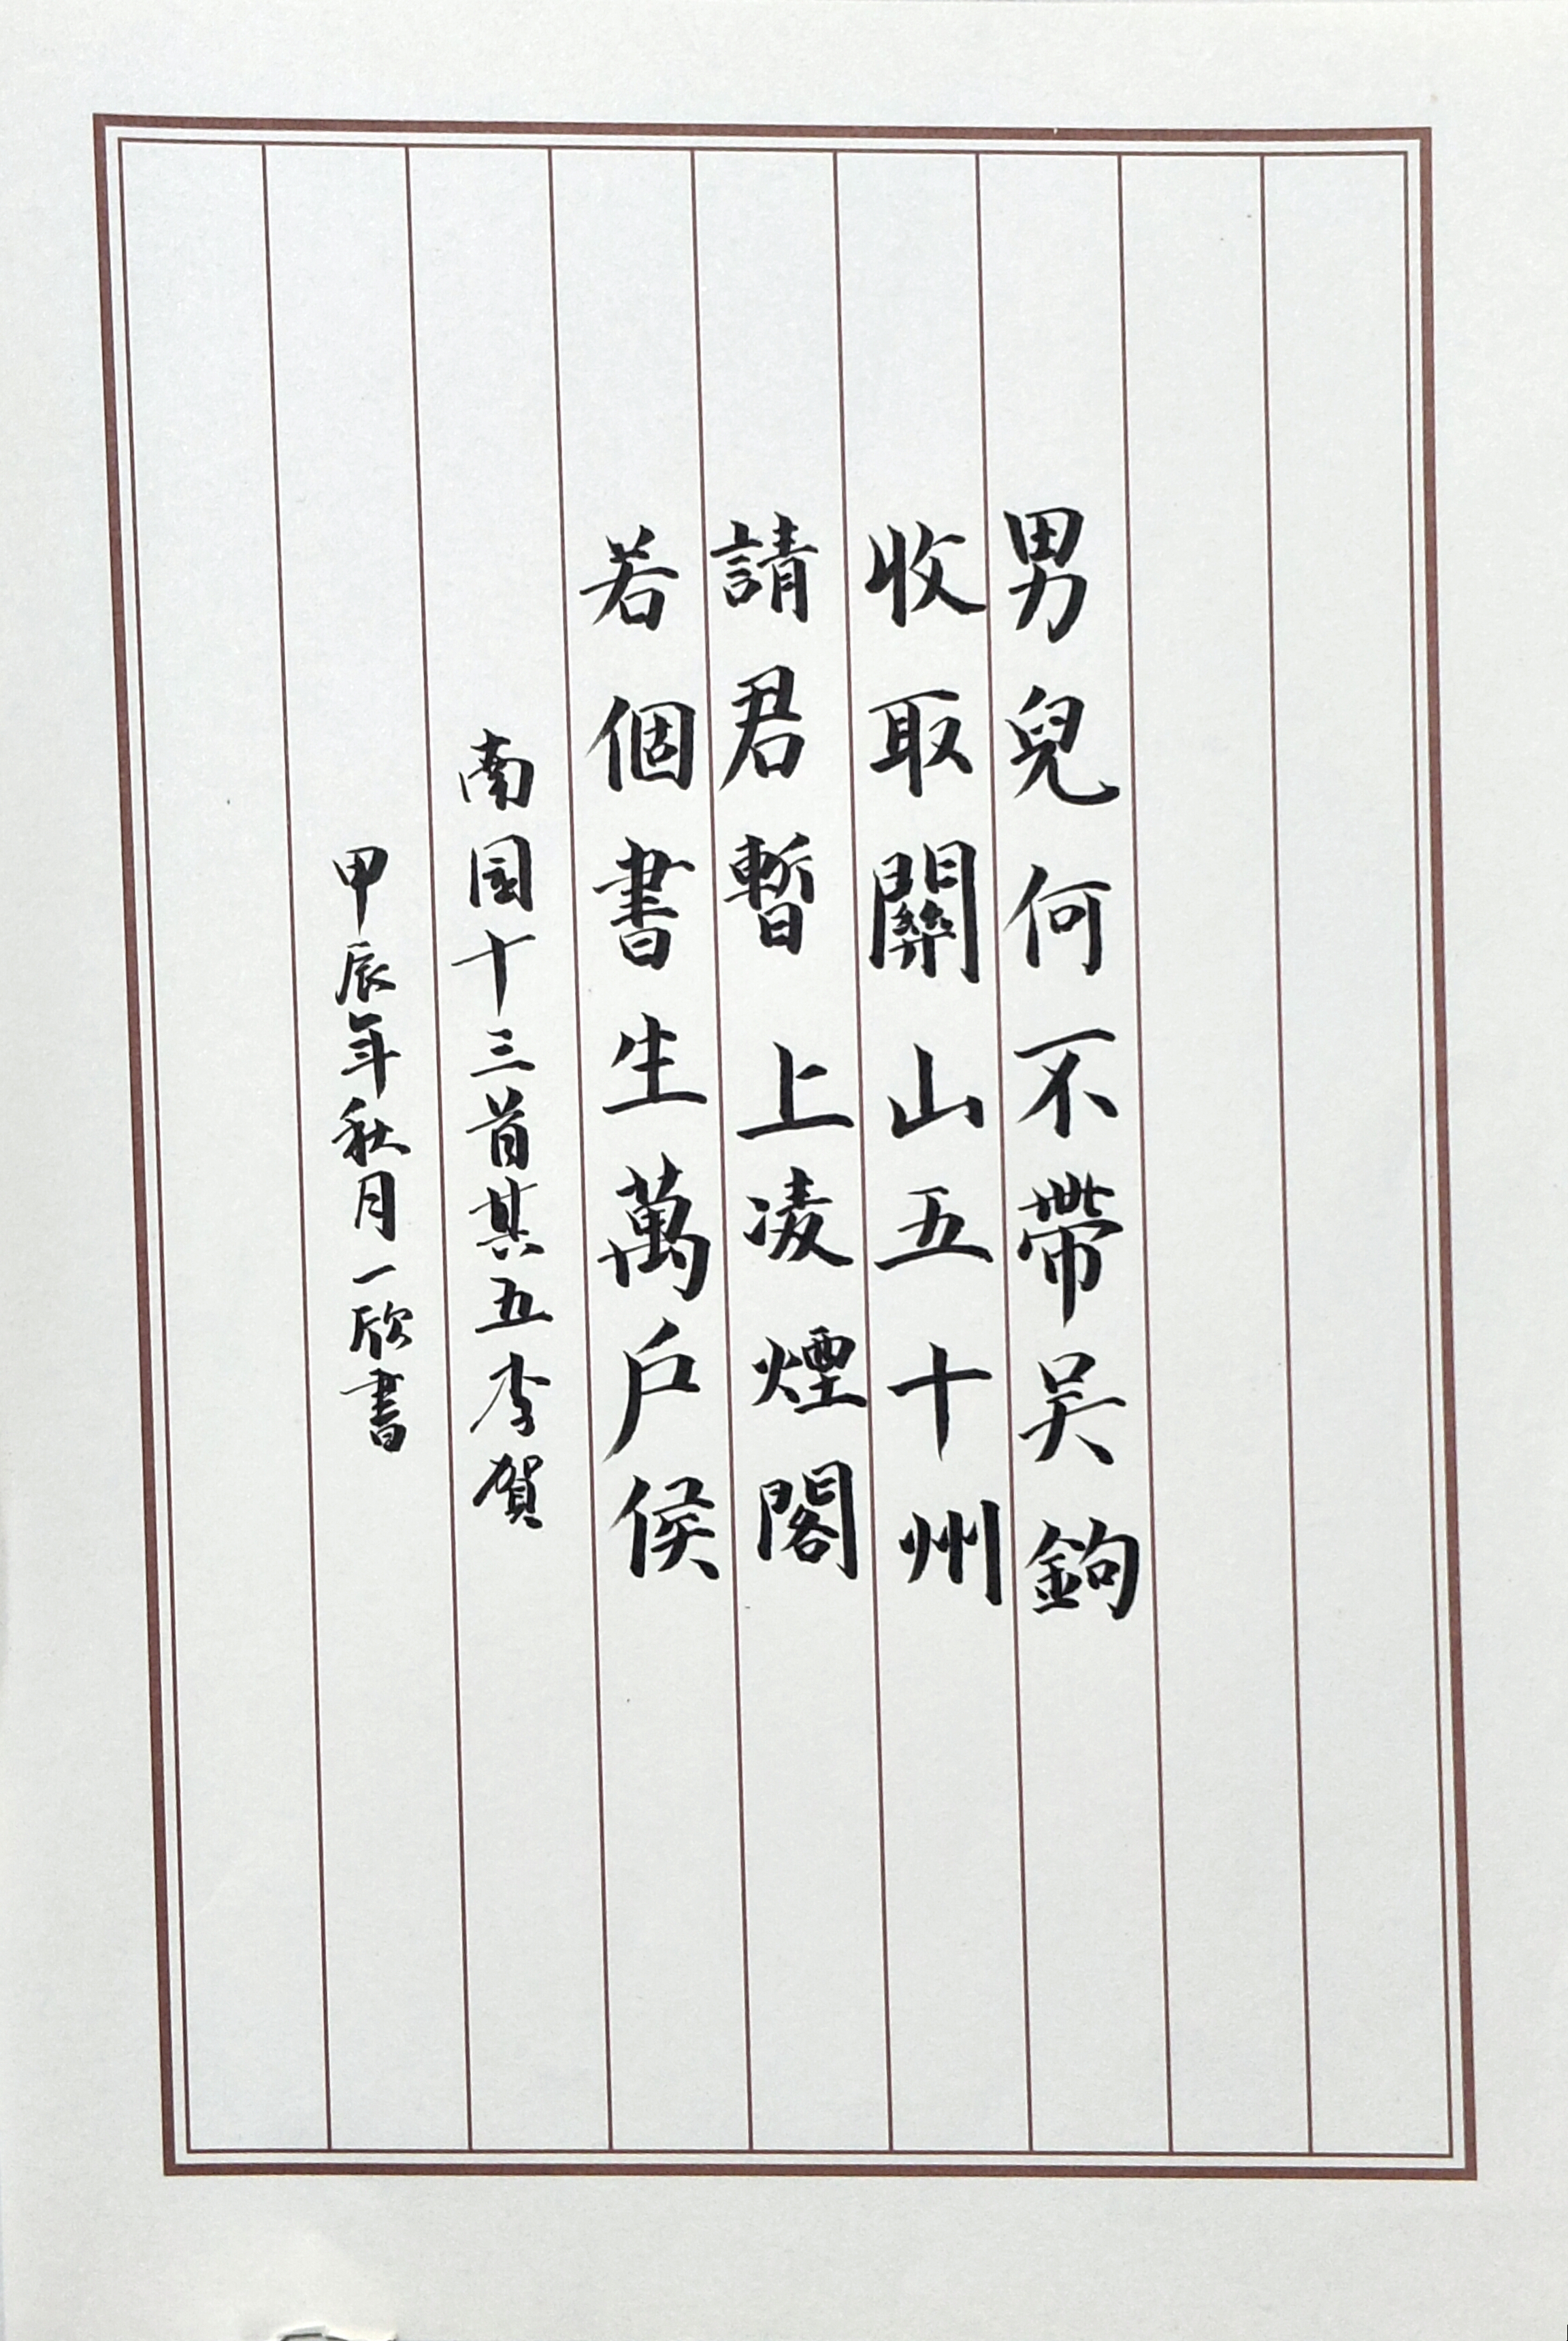 男兒何不帶吴鉤
收取關山五十州
請君暫上凌煙閣
若個書生萬戶侯
南园十三首其五李賀
甲辰年秋月一欣書